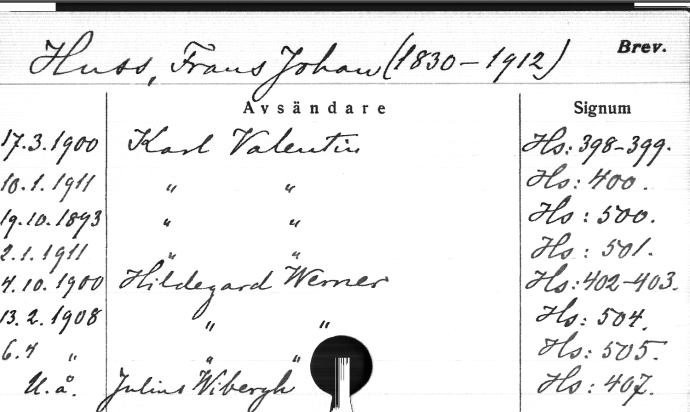 Huss, Frans Johan (1830–1912) Brev.
Avsändare Signum
17.3.1900 Karl Valentin Hs: 398–399.
10.1.1911 " " Hs: 400.
19.10.1893 " " Hs: 500.
2.1.1911 " " Hs: 501.
4.10.1900 Hildegard Werner Hs: 402–403.
13.2.1908 " " Hs: 504.
6.4 " " " Hs: 505.
U.å. Julius Wibergh Hs: 407.